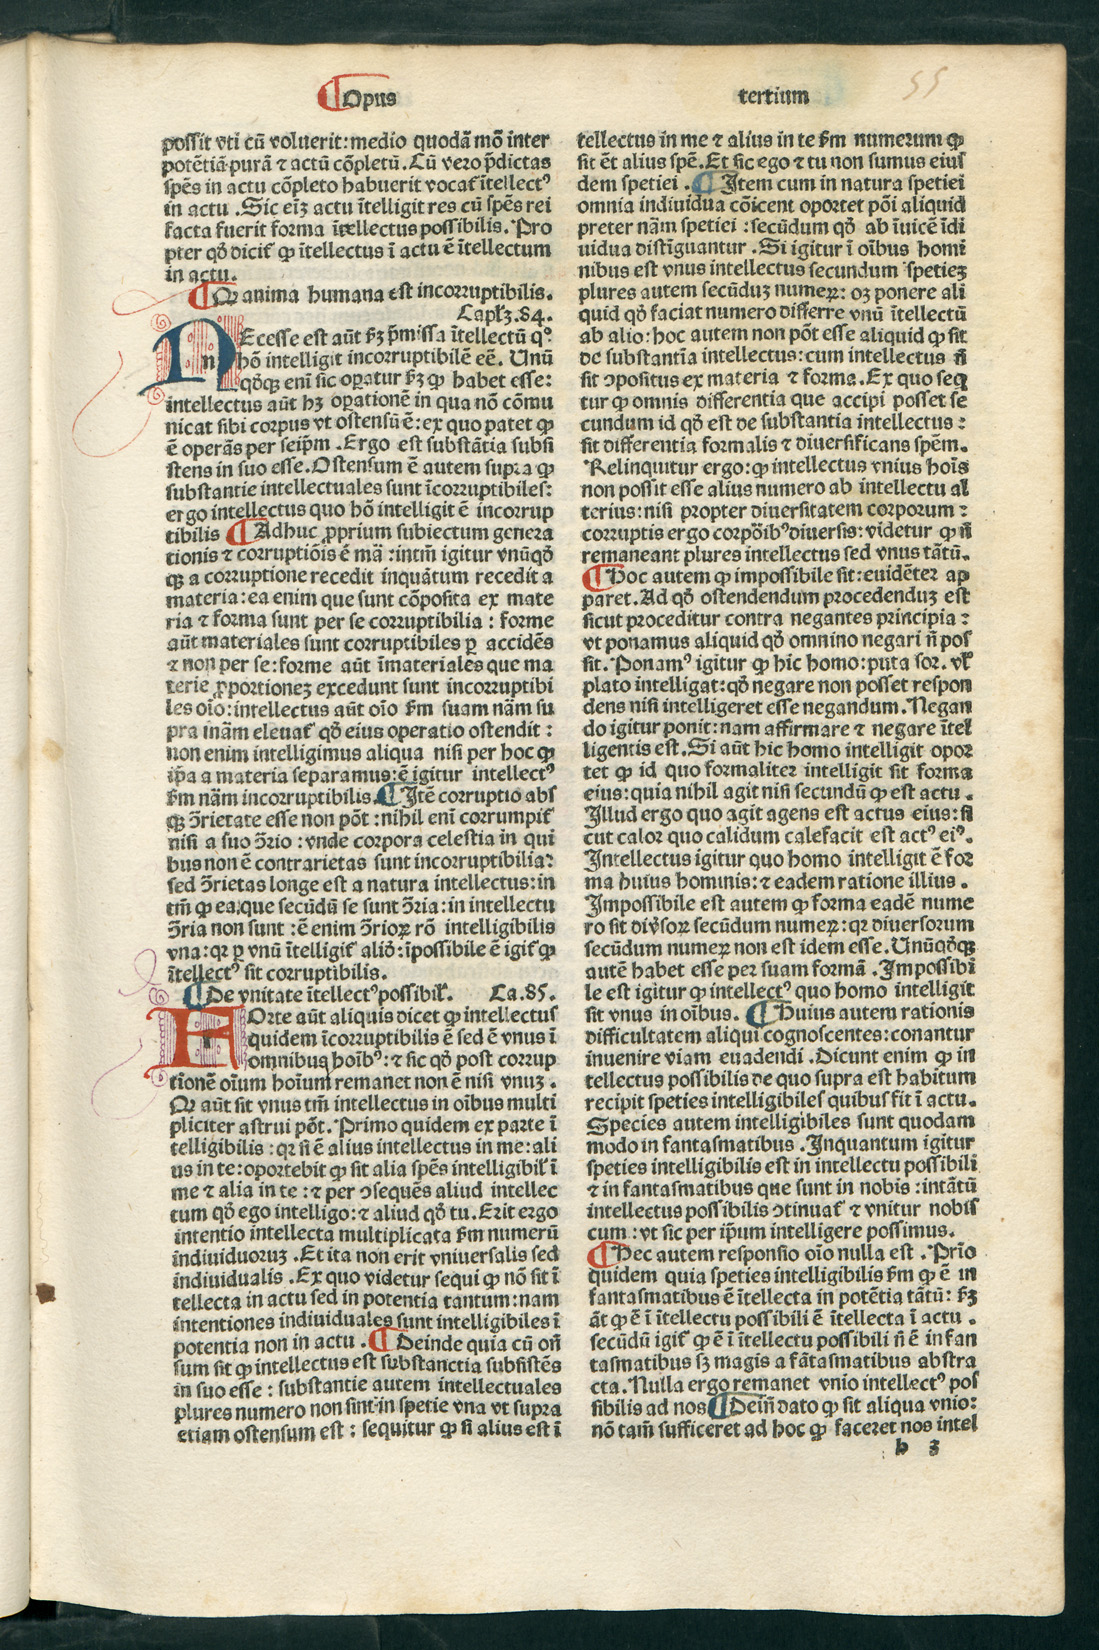 Opus tertium
55
possit vti cū voluerit: medio quodā mō inter
potētiā purā ⁊ actū cōpletū. Cū vero p̄dictas
spēs in actu cōpleto habuerit vocat̄ ītellectꝰ
in actu. Sic eīꝫ actu ītelligit res cū spēs rei
facta fuerit forma ītellectus possibilis. Pro
pter qȏ dicit̄ ꝙ ītellectus ī actu ē ītellectum
in actu.
¶ Qꝛ anima humana est incorruptibilis.
Caplꝫ. 84.
NEcesse est aūt s̄ꝫ p̄missa ītellectū q°
hō intelligit incorruptibilē eē. Unū
qȏqꝫ enī sic opatur s̄ꝫ ꝙ habet esse:
intellectus aūt hꝫ opationē in qua nō cōmu
nicat sibi corpus vt ostensū ē: ex quo patet ꝙ
ē operās per seip̄m. Ergo est substātia subsi
stens in suo esse. Ostensum ē autem supra ꝙ
substantie intellectuales sunt īcorruptibiles:
ergo intellectus quo hō intelligit ē incorrup
tibilis ¶ Adhuc ꝓprium subiectum genera
tionis ⁊ corruptiōis ē mā: intm̄ igitur vnūqȏ
qꝫ a corruptione recedit inquātum recedit a
materia: ea enim que sunt cōposita ex mate
ria ⁊ forma sunt per se corruptibilia: forme
aūt materiales sunt corruptibiles ꝑ accidēs
⁊ non per se: forme aūt īmateriales que ma
terie ꝓportionez excedunt sunt incorruptibi
les oīo: intellectus aūt oīo s̄m suam nām su
pra mām eleuat̄ qȏ eius operatio ostendit:
non enim intelligimus aliqua nisi per hoc ꝙ
ip̄a a materia separamus: ē igitur intellectꝰ
s̄m nām incorruptibilis. ¶ Itē corruptio abs
qꝫ ꝯrietate esse non pōt: nihil enī corrumpit̄
nisi a suo ꝯrio: vnde corpora celestia in qui
bus non ē contrarietas sunt incorruptibilia:
sed ꝯrietas longe est a natura intellectus: in
tm̄ ꝙ ea que secūdū se sunt ꝯria: in intellectu
ꝯria non sunt: ē enim ꝯrioꝝ rō intelligibilis
vna: qꝛ ꝑ vnū ītelligit̄ aliȏ: īpossibile ē igit̄ ꝙ
ītellectꝰ sit corruptibilis.
¶ De vnitate ītellectꝰ possibil̄. Ca. 85.
FOrte aūt aliquis dicet ꝙ intellectus
quidem īcorruptibilis ē sed ē vnus ī
omnibus hoībꝰ: ⁊ sic qȏ post corrup
tionē oīum hoīum remanet non ē nisi vnuꝫ.
Qꝛ aūt sit vnus tm̄ intellectus in oībus multi
pliciter astrui pōt. Primo quidem ex parte ī
telligibilis: qꝛ si ē alius intellectus in me: ali
us in te: oportebit ꝙ sit alia spēs intelligibil̄ ī
me ⁊ alia in te: ⁊ per ꝯsequēs aliud intellec
tum qȏ ego intelligo: ⁊ aliud qȏ tu. Erit ergo
intentio intellecta multiplicata s̄m numerū
indiuiduoruꝫ. Et ita non erit vniuersalis sed
indiuidualis. Ex quo videtur sequi ꝙ nō sit ī
tellecta in actu sed in potentia tantum: nam
intentiones indiuiduales sunt intelligibiles ī
potentia non in actu. ¶ Deinde quia cū on̄
sum sit ꝙ intellectus est substanctia subsistēs
in suo esse: substantie autem intellectuales
plures numero non sint in spetie vna vt supra
etiam ostensum est: sequitur ꝙ si alius est ī
tellectus in me ⁊ alius in te s̄m numerum ꝙ
sit ēt alius spē. Et sic ego ⁊ tu non sumus eius
dem spetiei. ¶ Item cum in natura spetiei
omnia indiuidua cōicent oportet pōi aliquid
preter nām spetiei: secūdum qȏ ab īuicē īdi
uidua distīguantur. Si igitur ī oībus homī
nibus est vnus intellectus secundum spetieꝫ
plures autem secūduꝫ numeꝝ: oꝫ ponere ali
quid qȏ faciat numero differre vnū ītellectū
ab alio: hoc autem non pōt esse aliquid ꝙ sit
de substantia intellectus: cum intellectus n̄
sit ꝯpositus ex materia ⁊ forma. Ex quo seq̄
tur ꝙ omnis differentia que accipi posset se
cundum id qȏ est de substantia intellectus:
sit differentia formalis ⁊ diuersificans spēm.
Relinquitur ergo: ꝙ intellectus vnius hoīs
non possit esse alius numero ab intellectu al
terius: nisi propter diuersitatem corporum:
corruptis ergo corpōibꝰ diuersis: videtur ꝙ n̄
remaneant plures intellectus sed vnus tātū.
¶ Hoc autem ꝙ impossibile sit: euidēter ap
paret. Ad qȏ ostendendum procedenduꝫ est
sicut proceditur contra negantes principia:
vt ponamus aliquid qȏ omnino negari n̄ pos
sit. Ponamꝰ igitur ꝙ hic homo: puta sor. vl̄
plato intelligat: qȏ negare non posset respon
dens nisi intelligeret esse negandum. Negan
do igitur ponit: nam affirmare ⁊ negare ītel
ligentis est. Si aūt hic homo intelligit opor
tet ꝙ id quo formaliter intelligit sit forma
eius: quia nihil agit nisi secundū ꝙ est actu.
Illud ergo quo agit agens est actus eius: si
cut calor quo calidum calefacit est actꝰ eiꝰ.
Intellectus igitur quo homo intelligit ē for
ma huius hominis: ⁊ eadem ratione illius.
Impossibile est autem ꝙ forma eadē nume
ro sit diuīsoꝝ secūdum numeꝝ: qꝛ diuersorum
secūdum numeꝝ non est idem esse. Unūqȏqꝫ
autē habet esse per suam formā. Impossibi
le est igitur ꝙ intellectꝰ quo homo intelligit
sit vnus in oībus. ¶ Huius autem rationis
difficultatem aliqui cognoscentes: conantur
inuenire viam euadendi. Dicunt enim ꝙ in
tellectus possibilis de quo supra est habitum
recipit speties intelligibiles quibus fit ī actu.
Species autem intelligibiles sunt quodam
modo in fantasmatibus. Inquantum igitur
speties intelligibilis est in intellectu possibili
⁊ in fantasmatibus que sunt in nobis: intātū
intellectus possibilis ꝯtinuat̄ ⁊ vnitur nobis
cum: vt sic per ip̄um intelligere possimus.
¶ Hec autem responsio oīo nulla est. Prīo
quidem quia speties intelligibilis s̄m ꝙ ē in
fantasmatibus ē ītellecta in potētia tātū: s̄ꝫ
āt ꝙ ē ī ītellectu possibili ē ītellecta ī actu.
secūdū igit̄ ꝙ ē ī ītellectu possibili n̄ ē in fan
tasmatibus sꝫ magis a fātasmatibus abstra
cta. Nulla ergo remanet vnio intellectꝰ pos
sibilis ad nos ¶ Dein̄ dato ꝙ sit aliqua vnio:
nō tam̄ sufficeret ad hoc ꝙ faceret nos intel
b 3